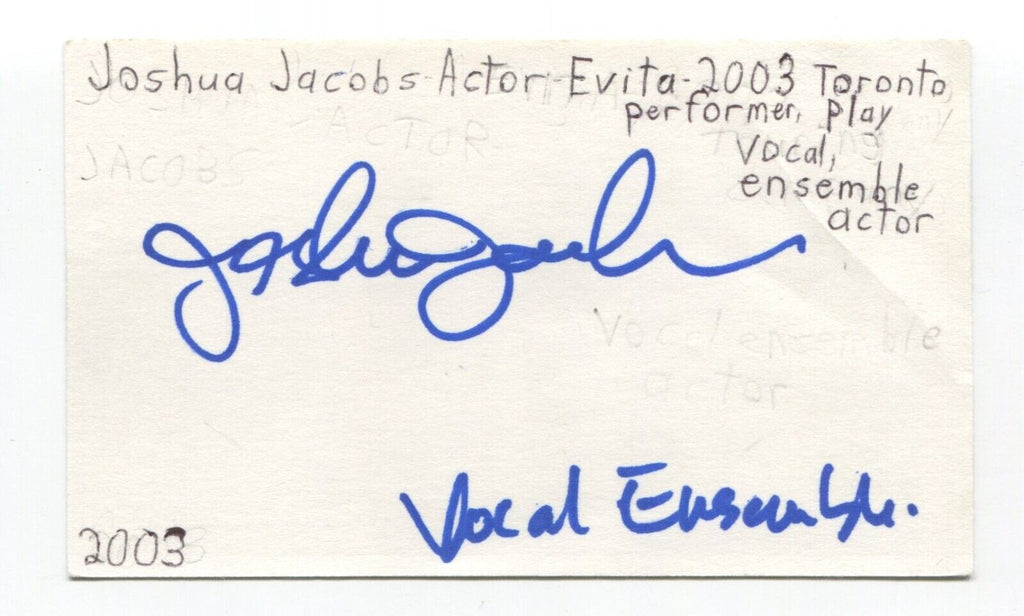 Joshua Jacobs-Actor-Evita-2003 Toronto,
performer, play
vocal,
ensemble
actor
JACOBS
-ACTOR-
Joshua Jacobs
Vocal ensemble
actor
Vocal Ensemble.
2003